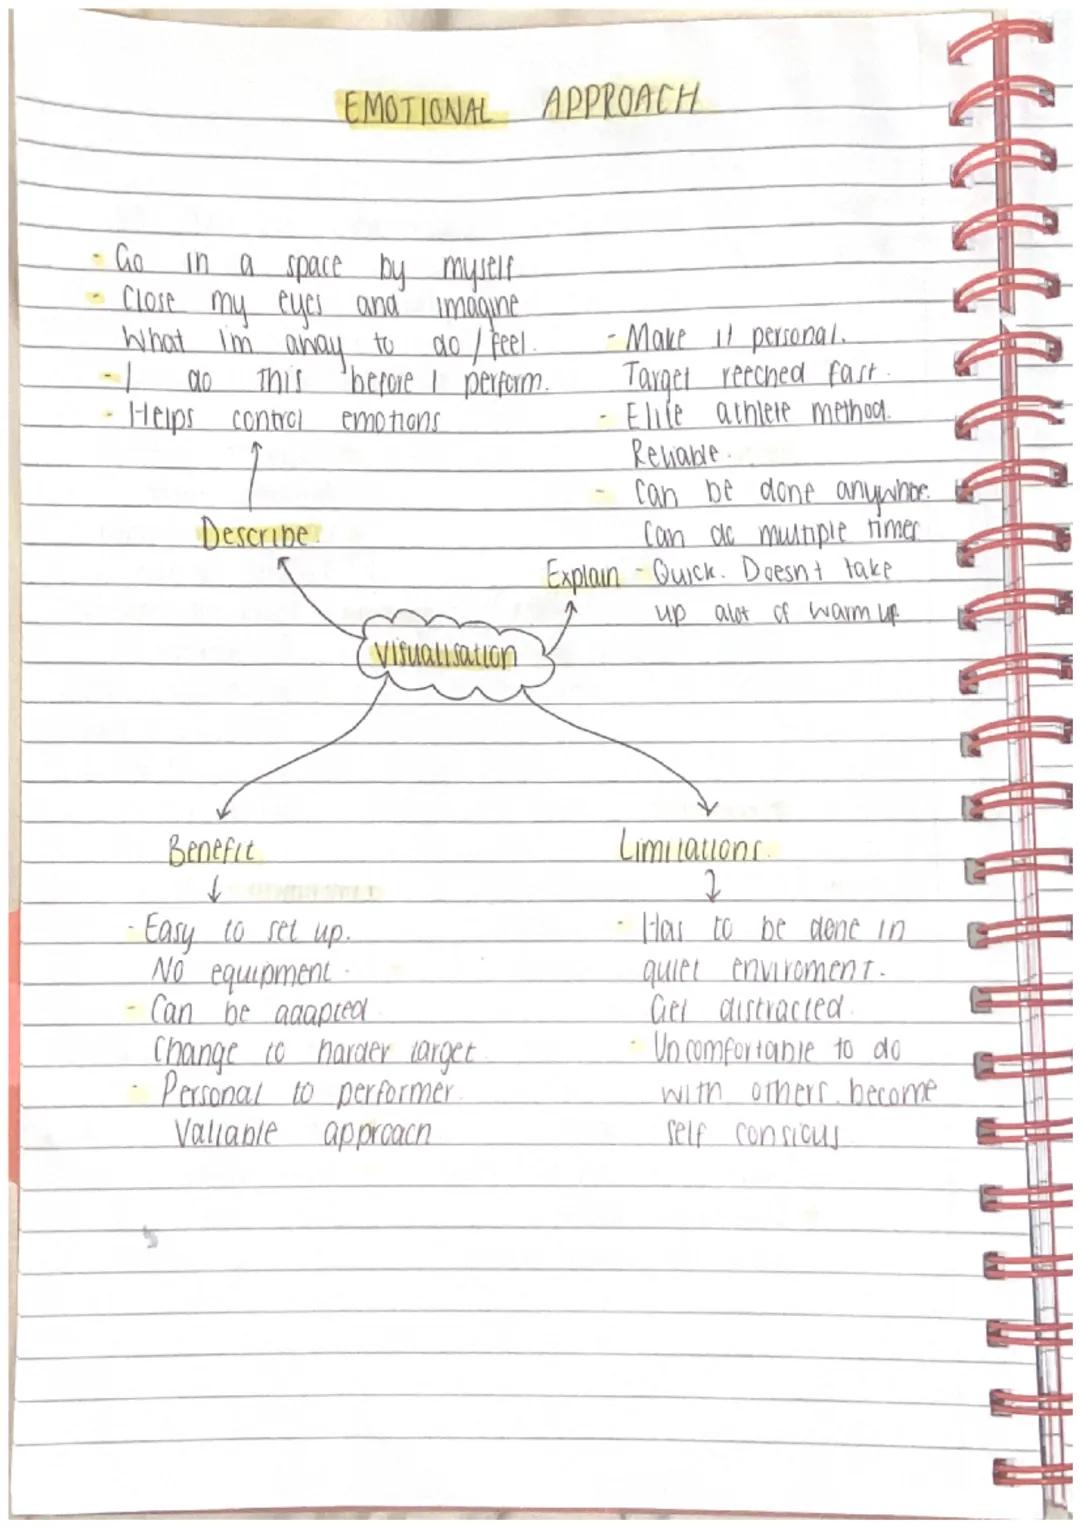 EMOTIONAL APPROACH
- Go in a space by myself
- Close my eyes and imagine
What im away to do / feel.
- I do this before I perform.
- Helps control emotions
Describe
- Make it personal.
Target reeched fast.
- Elite athlete method.
Reliable.
- Can be done anywhere.
Can do multiple times
Explain - Quick. Doesn't take
up alot of warm up
Visualisation
Benefit
- Easy to set up.
No equipment.
- Can be adapted
Change to harder target
- Personal to performer.
Valiable approach
Limitations.
- Has to be done in
quiet enviroment.
Get distracted.
- Uncomfortable to do
with others. become
self consious